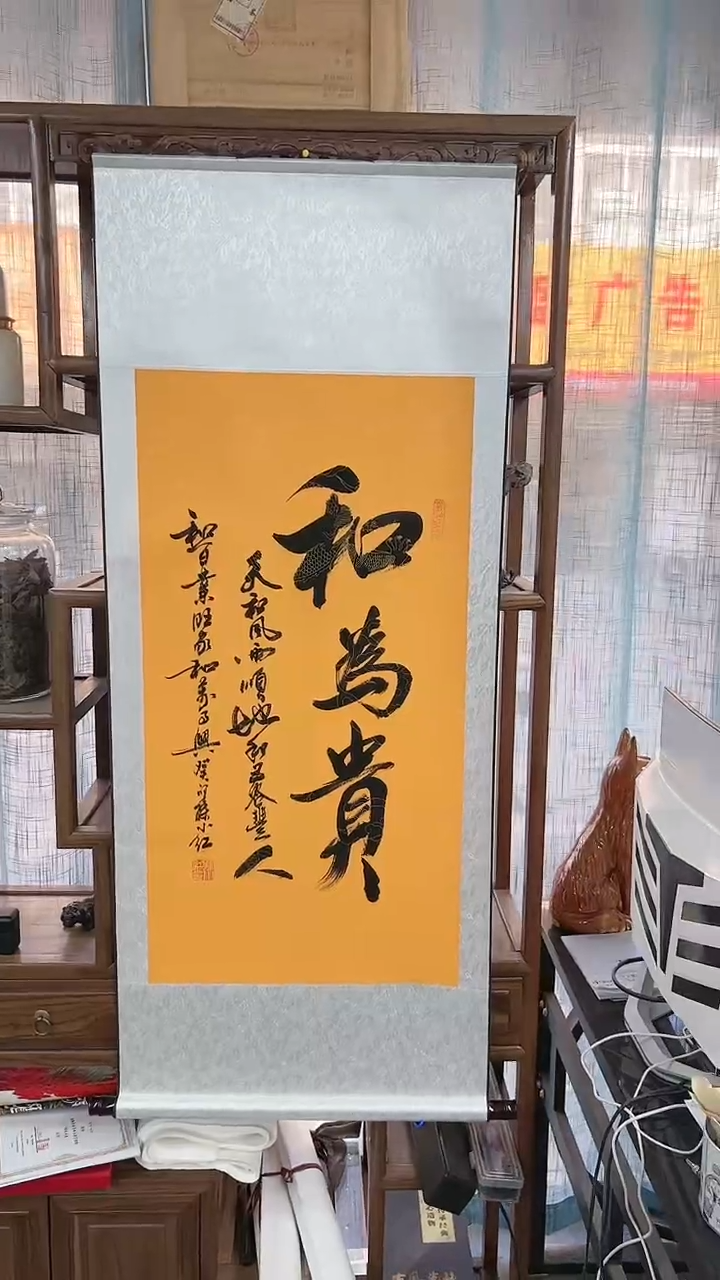 和為貴
天和風雨順地和五谷豐人
和百業旺家和萬事興癸卯孫小紅
廣告